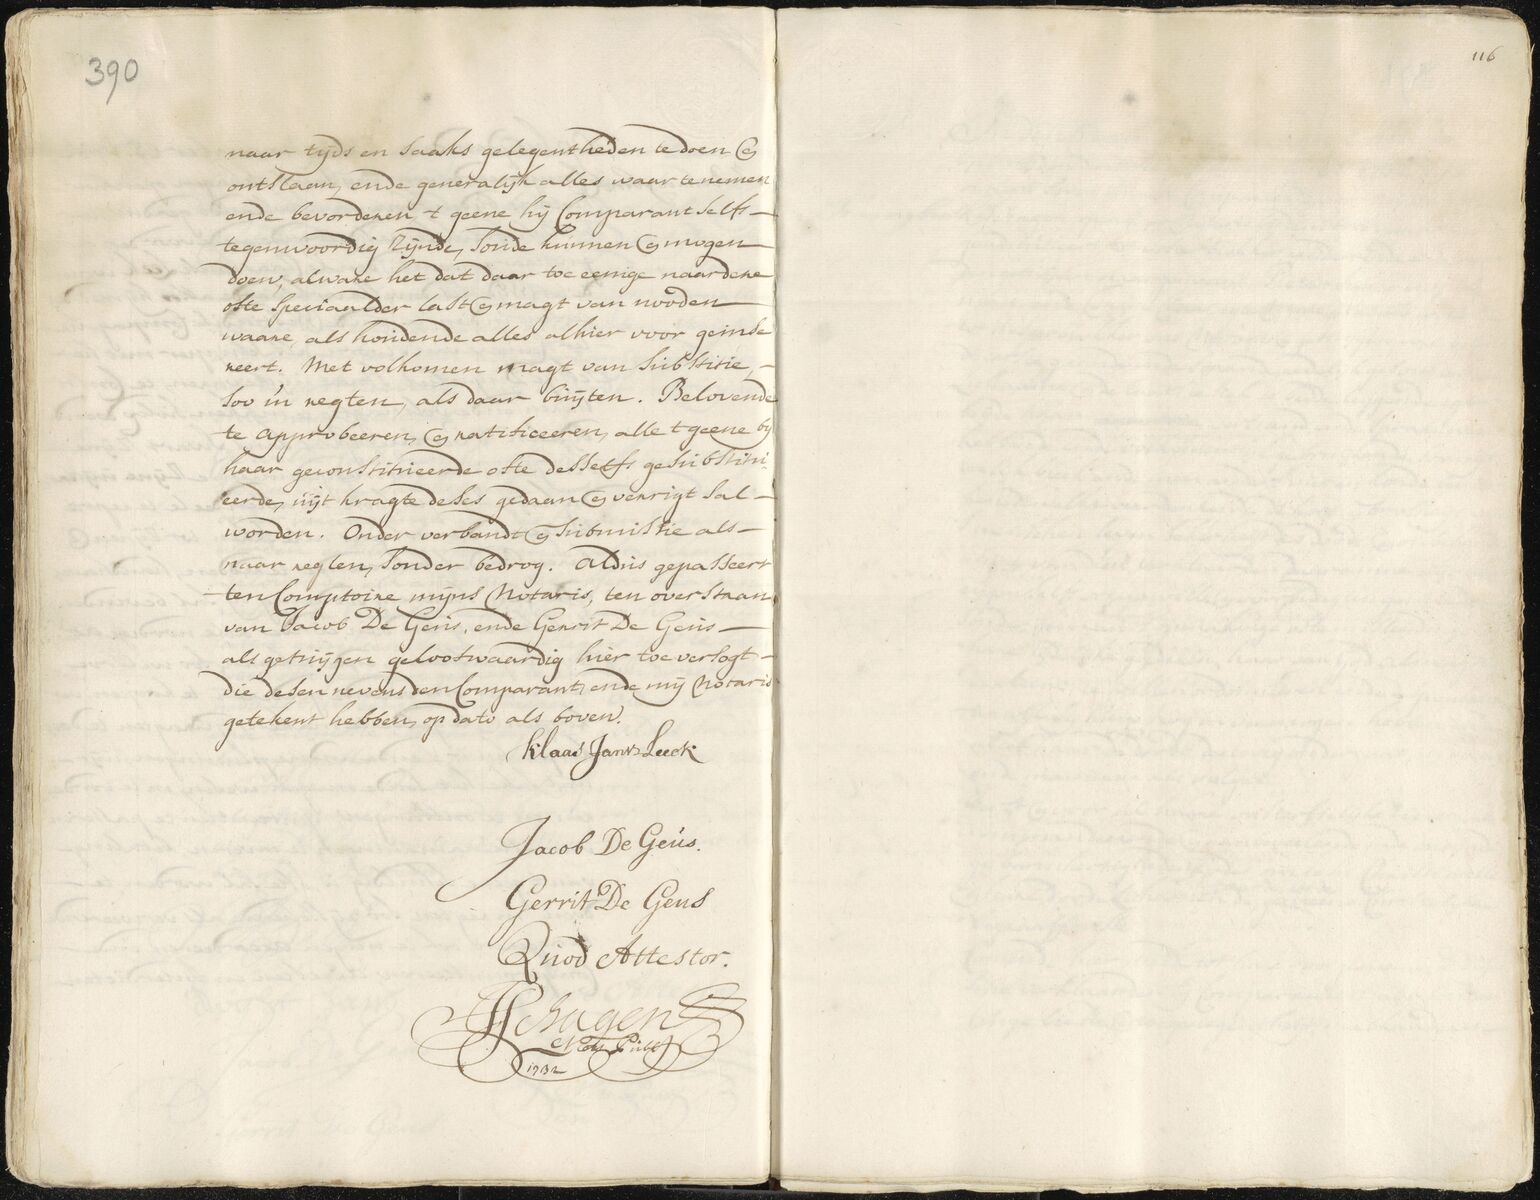 390
116
naar tijds en saaks gelegentheden te doen @
ontslaan, ende generalijk alles waar te nemen
ende bevorderen t geene hij Comparant selfs
tegenwoordig zijnde, soude kunnen @ mogen
doen, alware het dat daar toe eenige naardere
ofte speciaalder last @ magt van nooden
waare, als houdende alles alhier voor geinse
reert. Met volkomen magt van substitie,
soo in regten, als daar buijten. Belovende
te approbeeren, @ ratificeeren, alle t geene by
haar geconstitueerde ofte desselfs gesubstitu
eerde, uijt kragte deses gedaan @ verrigt sal
worden. Onder verbandt @ submissie als
naar regten, sonder bedrog. Aldus gepasseert
ten Comptoire mijns Notaris, ten overstaan
van Jacob De Geus, ende Gerrit De Geus
als getuijgen gelootwaardig hier toe versogt
die desen nevens den Comparant, ende mij Notaris
getekent hebben, op dato als boven.
Klaas Jansz Leek
Jacob De Geus.
Gerrit De Geus
Quod Attestor.
Schagen
Nots Publ
1732